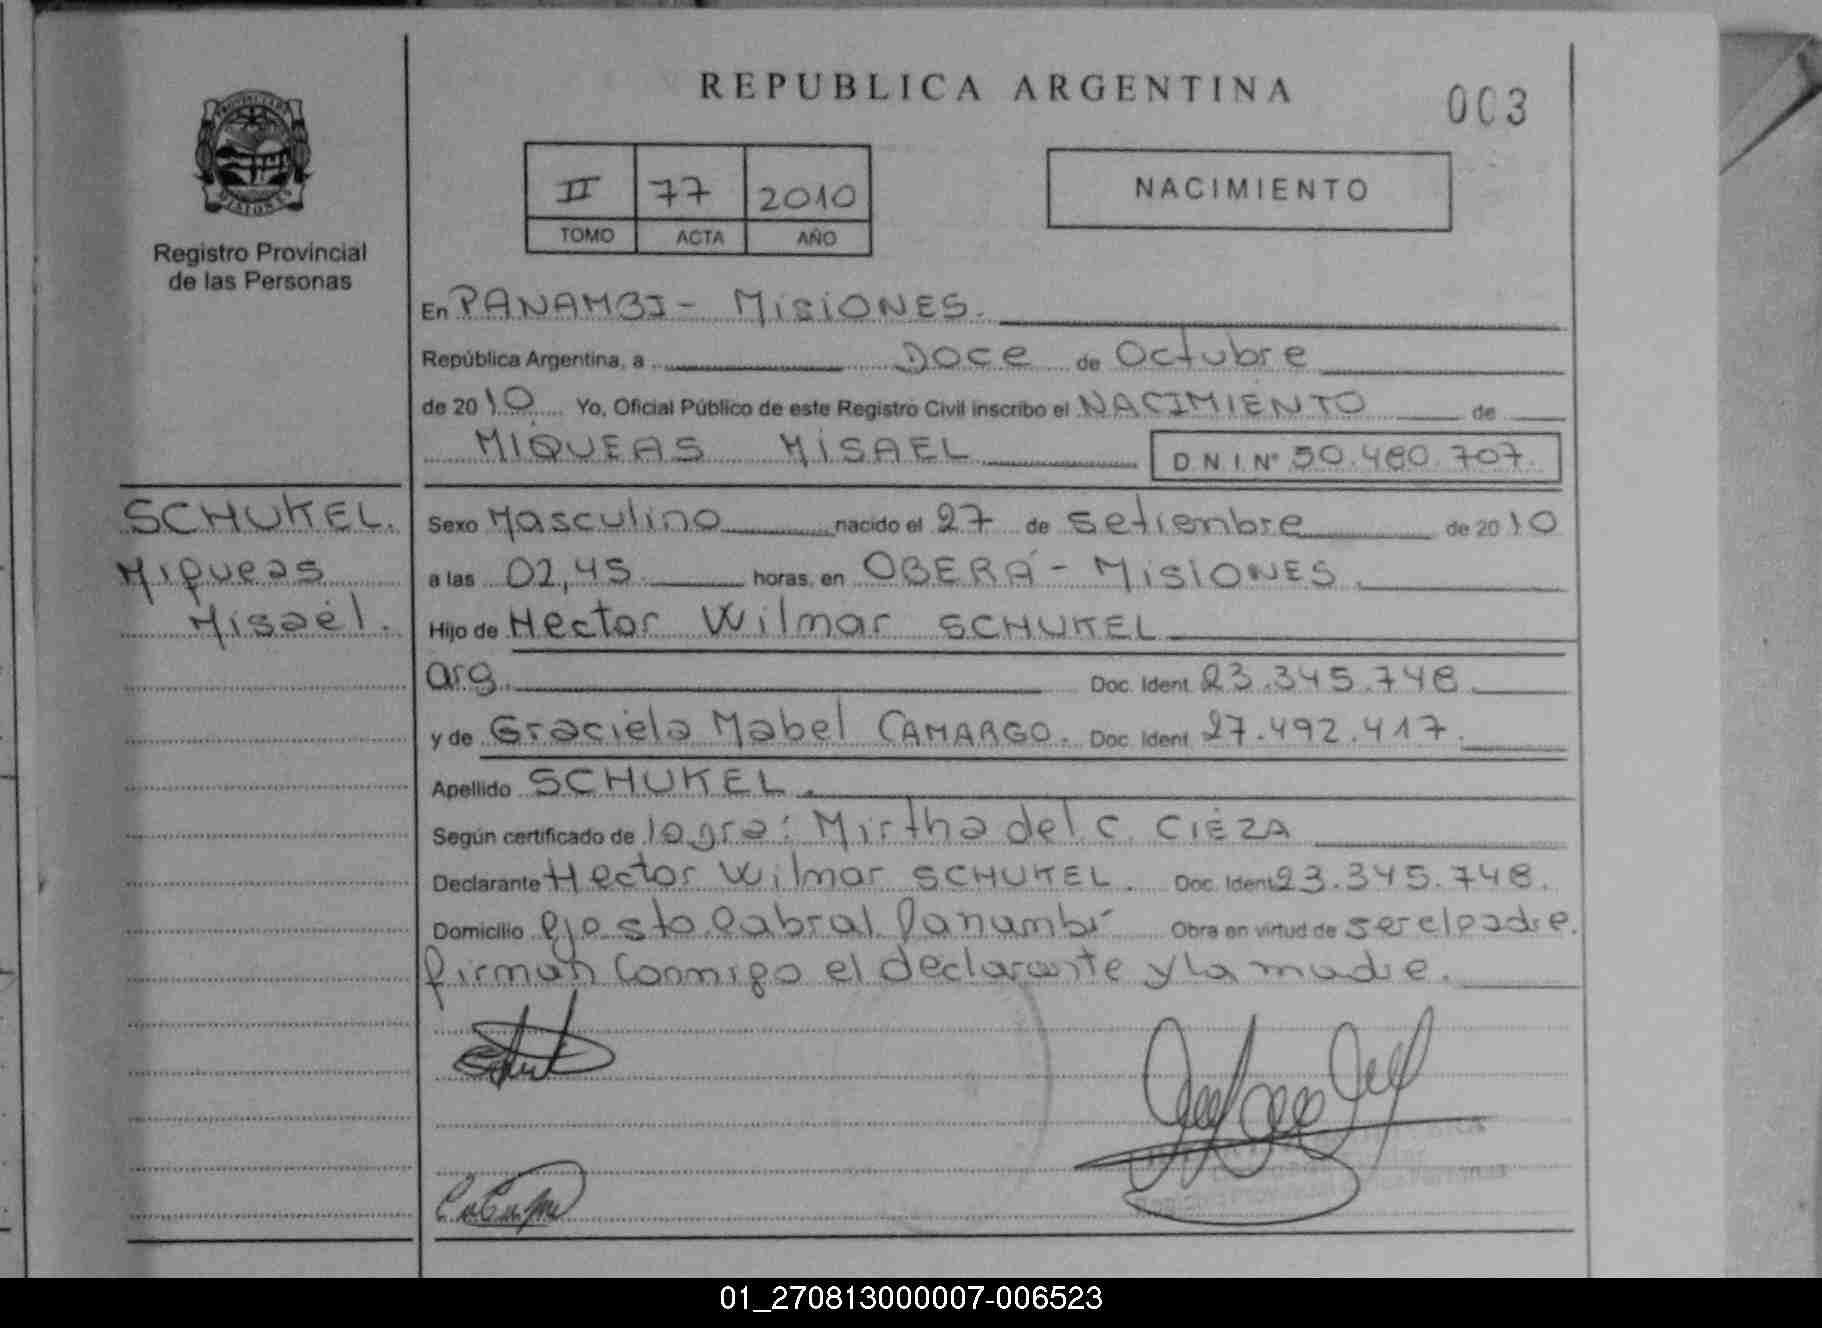 REPUBLICA ARGENTINA
003
II 77 2010
TOMO ACTA AÑO
NACIMIENTO
PROVINCIA DE MISIONES
Registro Provincial
de las Personas
En PANAMBI - MISIONES.
República Argentina, a DOCE de Octubre
de 2010 Yo, Oficial Público de este Registro Civil inscribo el NACIMIENTO de
MIQUEAS MISAEL D N I Nº 50.480.707.
SCHUKEL.
Miqueas
Misael.
Sexo Masculino nacido el 27 de Setiembre de 2010
a las 02,45 horas, en OBERÁ - MISIONES.
Hijo de Hector Wilmar SCHUKEL
arg. Doc. Ident. 23.345.748.
y de Graciela Mabel CAMARGO. Doc. Ident. 27.492.417.
Apellido SCHUKEL.
Según certificado de logra: Mirtha del C. CIEZA
Declarante Hector Wilmar SCHUKEL. Doc. Ident. 23.345.748.
Domicilio Cabral Panambí Obra en virtud de ser el padre.
firman conmigo el declarante y la madre.
01_270813000007-006523